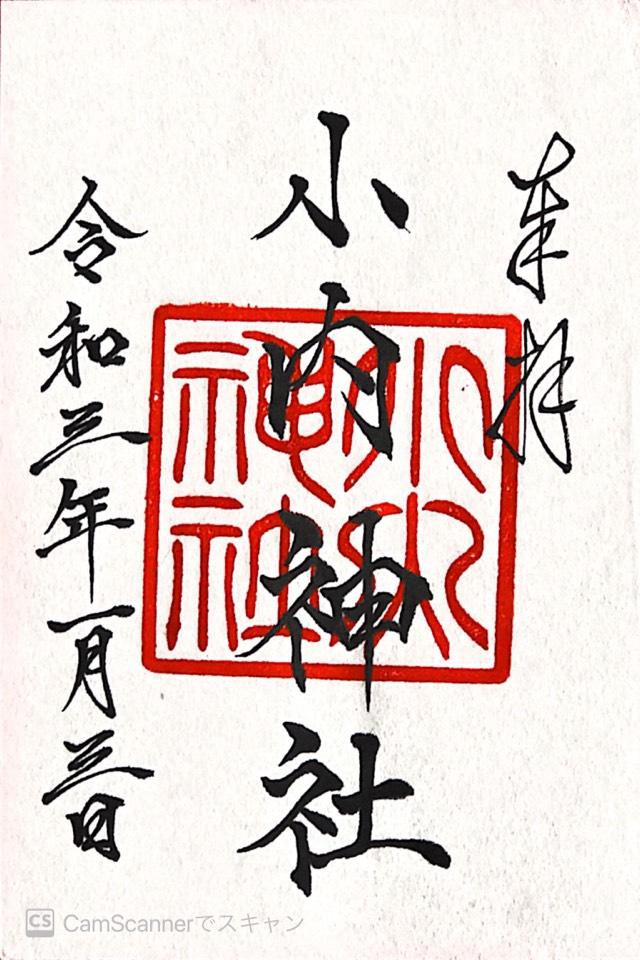 奉拝
小内神社
令和三年一月三日
CS CamScannerでスキャン